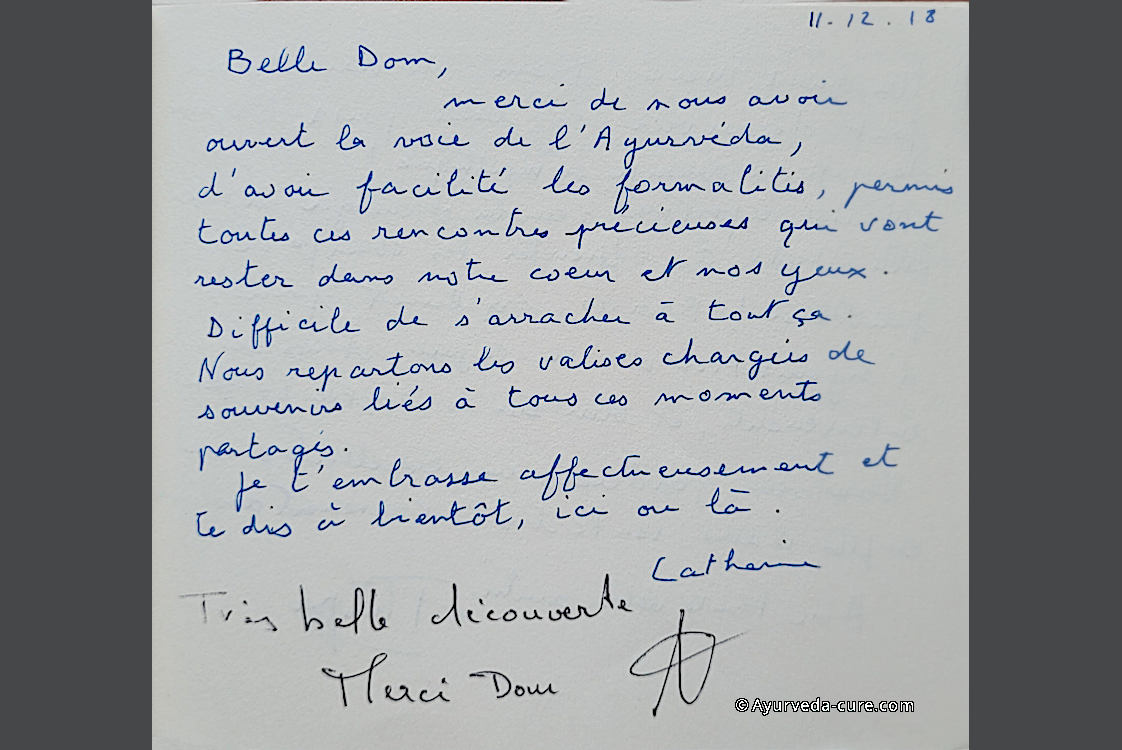 11.12.18
Belle Dom,
merci de nous avoir
ouvert la voie de l'Ayurvéda,
d'avoir facilité les formalités, permis
toutes ces rencontres précieuses qui vont
rester dans notre coeur et nos yeux.
Difficile de s'arracher à tout ça.
Nous repartons les valises chargées de
souvenirs liés à tous ces moments
partagés.
Je t'embrasse affectueusement et
te dis à bientôt, ici ou là.
Catherine
Très belle découverte
Merci Dom
©Ayurveda-cure.com